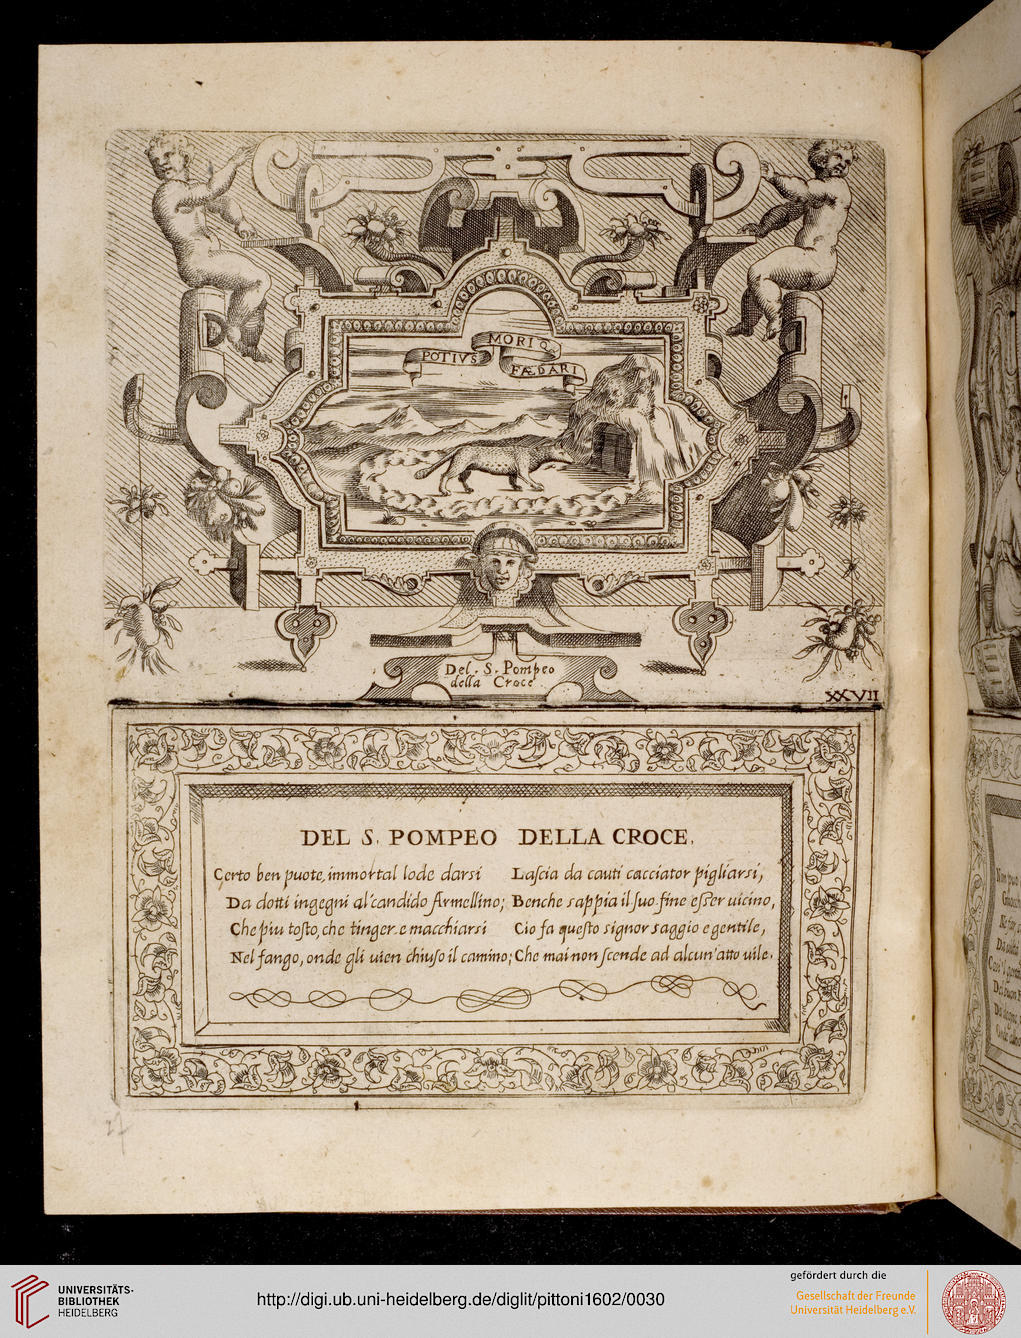 POTIVS MORI Q. FÆDARI
Del. S. Pompeo
della Croce
XXVII
DEL S. POMPEO DELLA CROCE.
Certo ben puote, immortal lode darsi
Da dotti ingegni al'candido Armellino;
Che piu tosto, che tinger e macchiarsi
Nel fango, onde gli uien chiuso il camino;
Lascia da cauti cacciator pigliarsi,
Benche sappia il suo fine esser uicino,
Cio fa questo signor saggio e gentile,
Che mai non scende ad alcun'atto uile.
27
UNIVERSITÄTS-
BIBLIOTHEK
HEIDELBERG
http://digi.ub.uni-heidelberg.de/diglit/pittoni1602/0030
gefördert durch die
Gesellschaft der Freunde
Universität Heidelberg e.V.